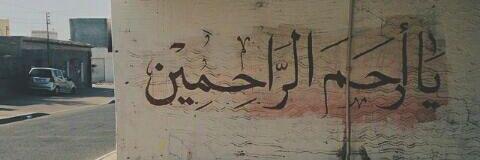 يَا أَرحَمَ الرَّاحِمِيْن